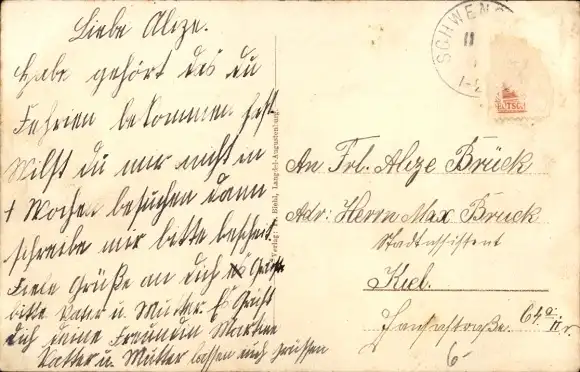 Liebe Alize.
Habe gehört das du
Fehrien bekommen hast
Willst du mir nicht in
4 Wochen besuchen dann
schreibe mir bitte bescheit
Fiele Grüße an dich
bitte Vater u. Mutter. Es Grüßt
dich deine Freundin Martha
Vatter u. Mutter lassen euch Grüssen
Verlag: Fr. Biehl, Langstr.-Augustenburg
SCHWENS
11
1-2
UTSC
An Frl. Alize Brück
Adr: Herrn Max Brück
Stadtassistent
Kiel.
Hansastraße. 64 a
II r.
6-